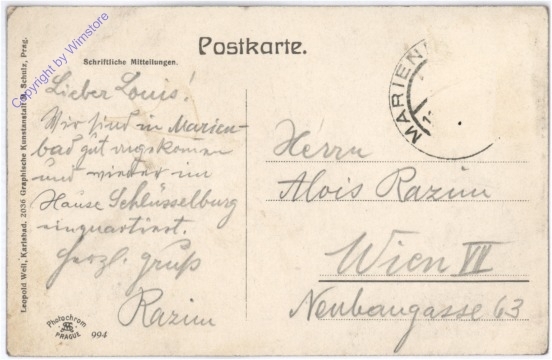 Postkarte.
Schriftliche Mitteilungen.
Lieber Louis!
Wir sind in Marien-
bad gut angekomen
und wieder im
Hause Schlüsselburg
einquartiert.
Herzl. Gruß
Razim
MARIEN
Herrn
Alois Razim
Wien VII
Neubaugasse 63
Leopold Weil, Karlsbad. 2036 Graphische Kunstanstalt St. Schulz, Prag.
Copyright by Wimstore
Photochrom
PRAGUE
994